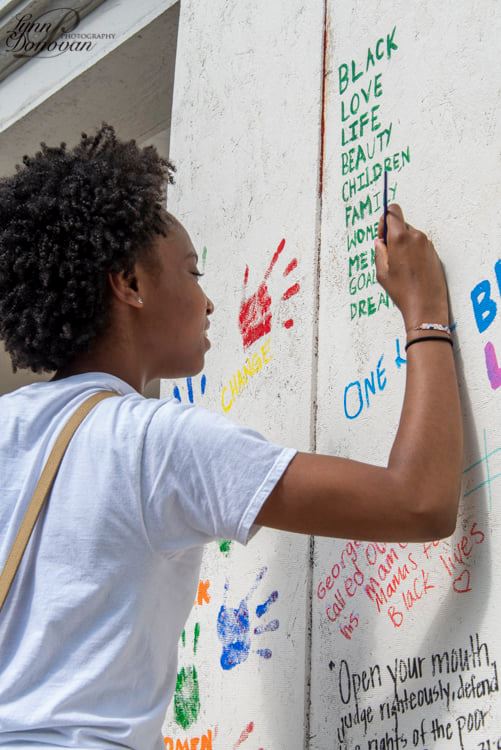 Lynn Donovan
PHOTOGRAPHY
BLACK
LOVE
LIFE
BEAUTY
CHILDREN
FAMI Y
WOME
ME
GOAL
DREA
CHANGE
ONE L
George
called out
his Mama
Mamas fo
Black lives
"Open your mouth,
judge righteously, defend
rights of the poor
OMEN